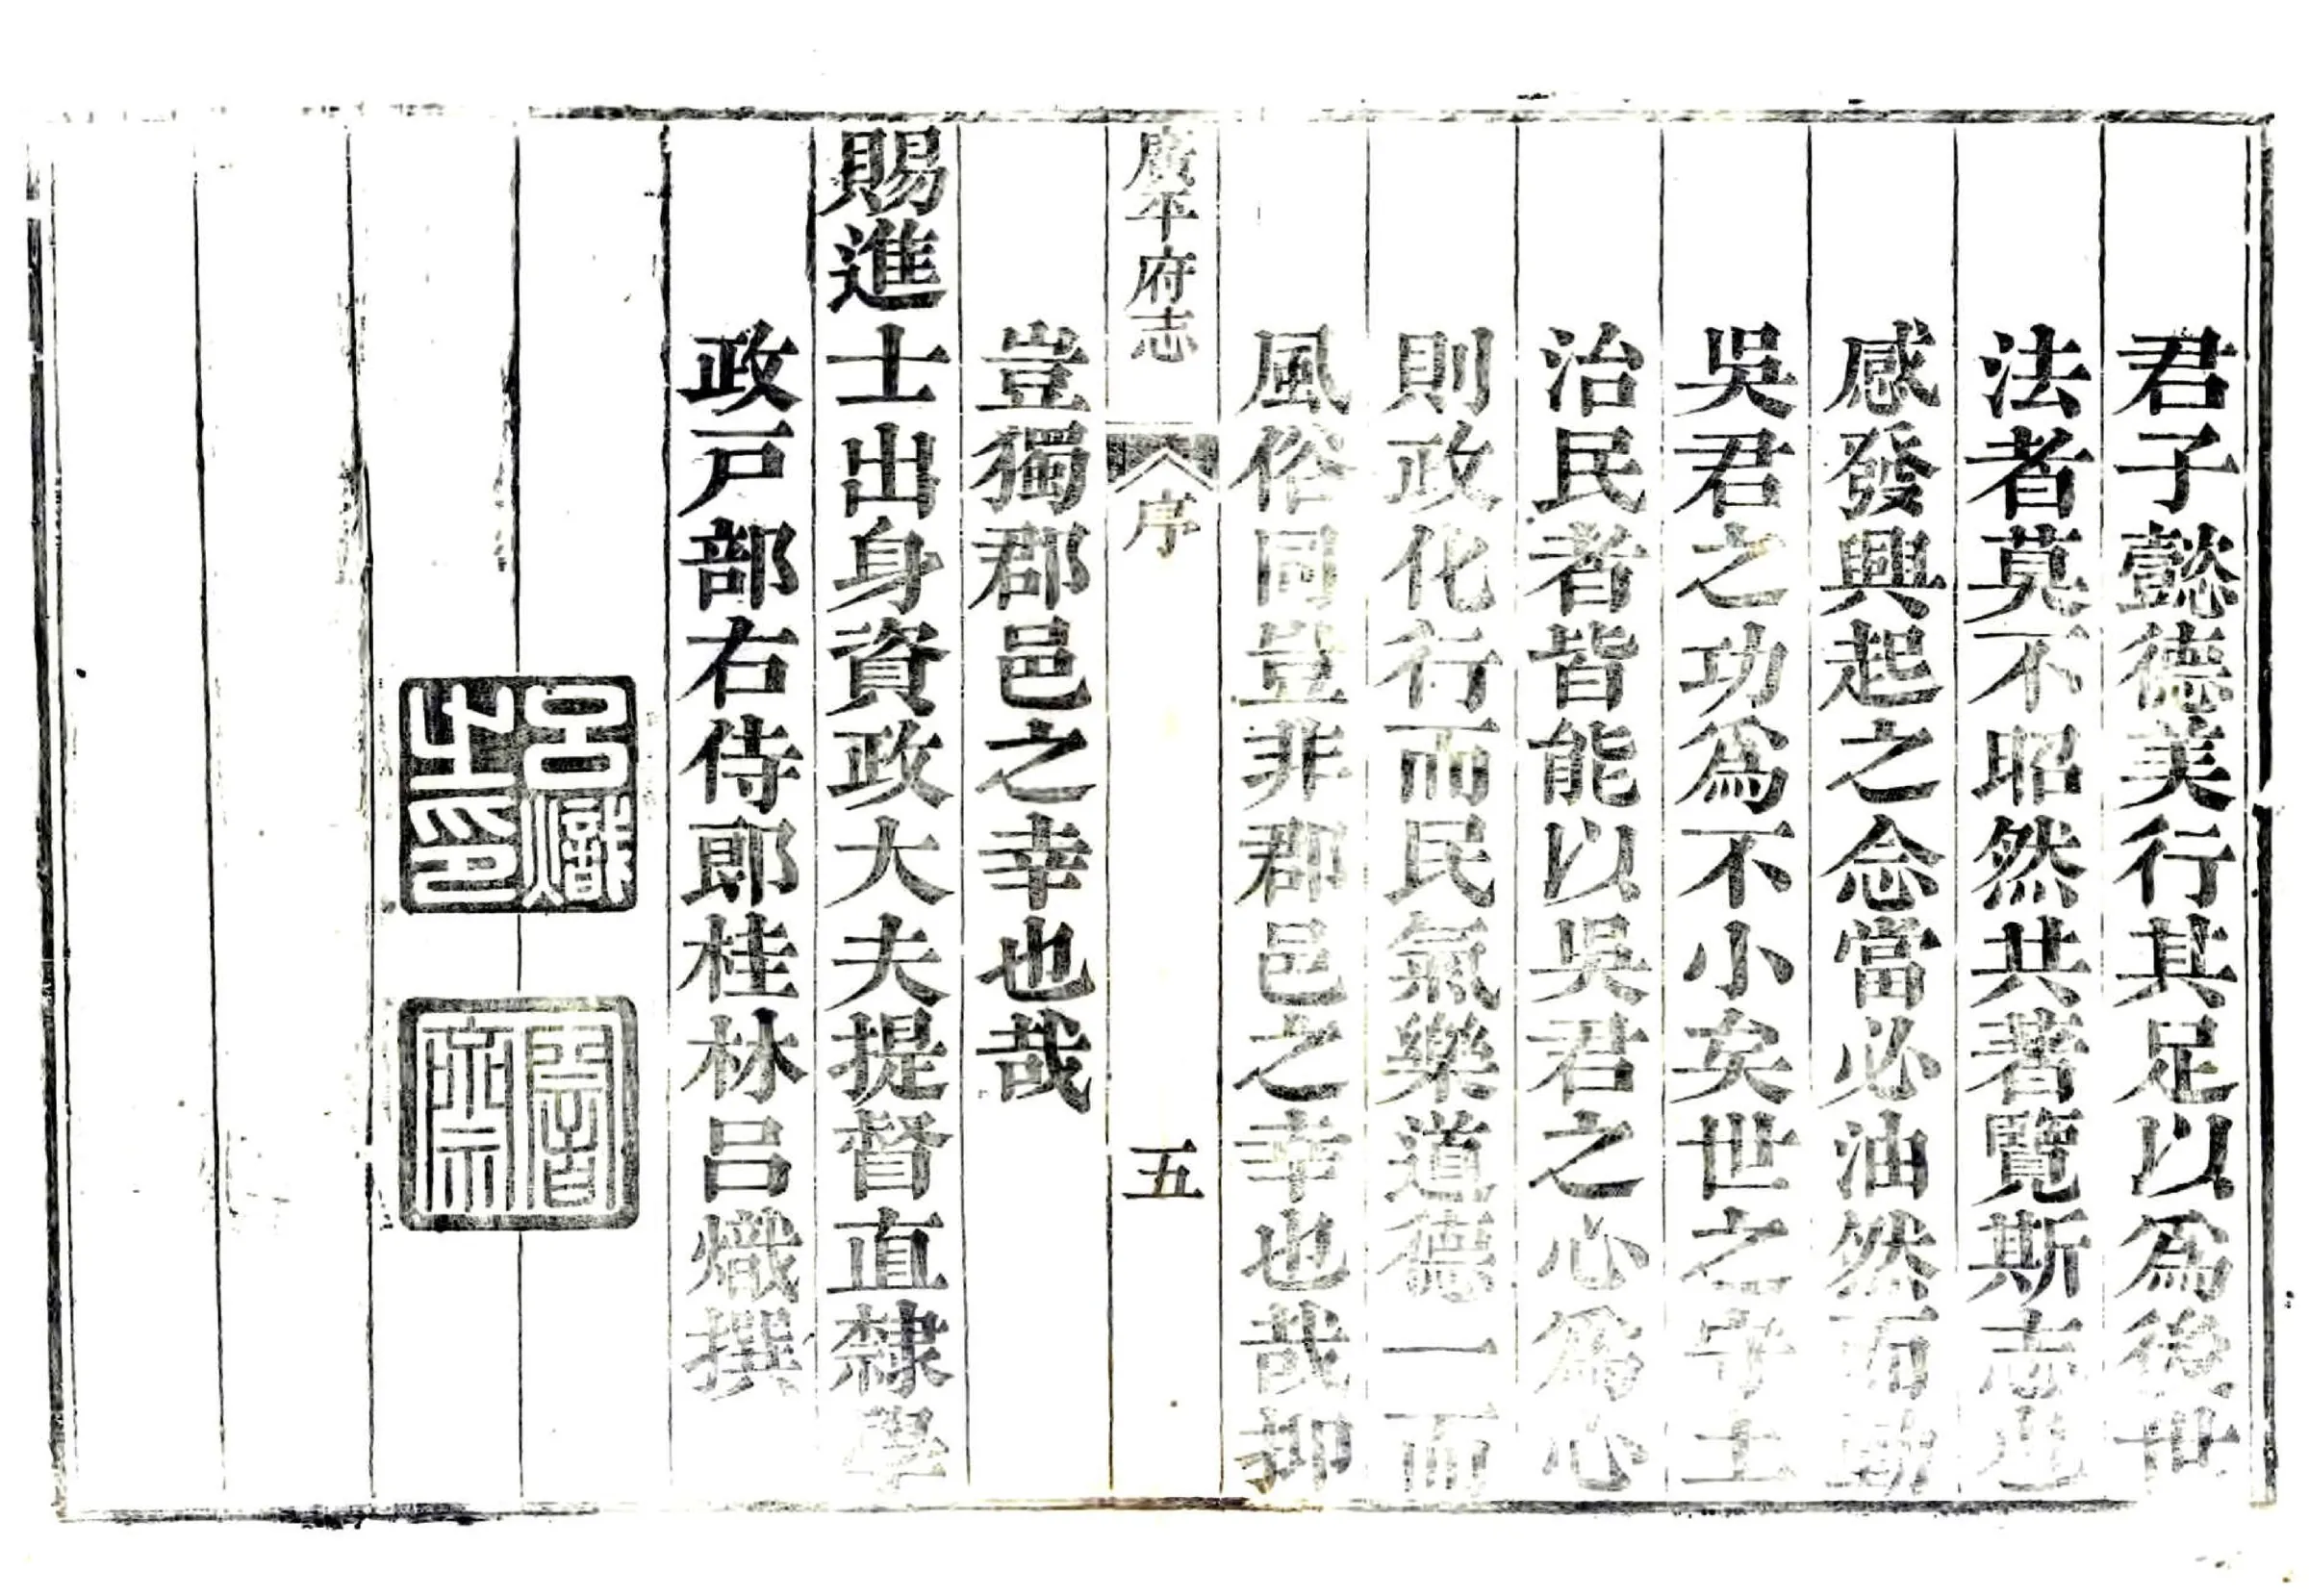 君子懿德美行其足以爲後世
法者莫不昭然共著覽斯志也
感發興起之念當必油然而動
吳君之功爲不小矣世之守土
治民者皆能以吳君之心爲心
則政化行而民氣樂道德一而
風俗同豈非郡邑之幸也哉抑
廣平府志
序
五
豈獨郡邑之幸也哉
賜進士出身資政大夫提督直隸學
政戸部右侍郎桂林呂熾撰
呂熾之印